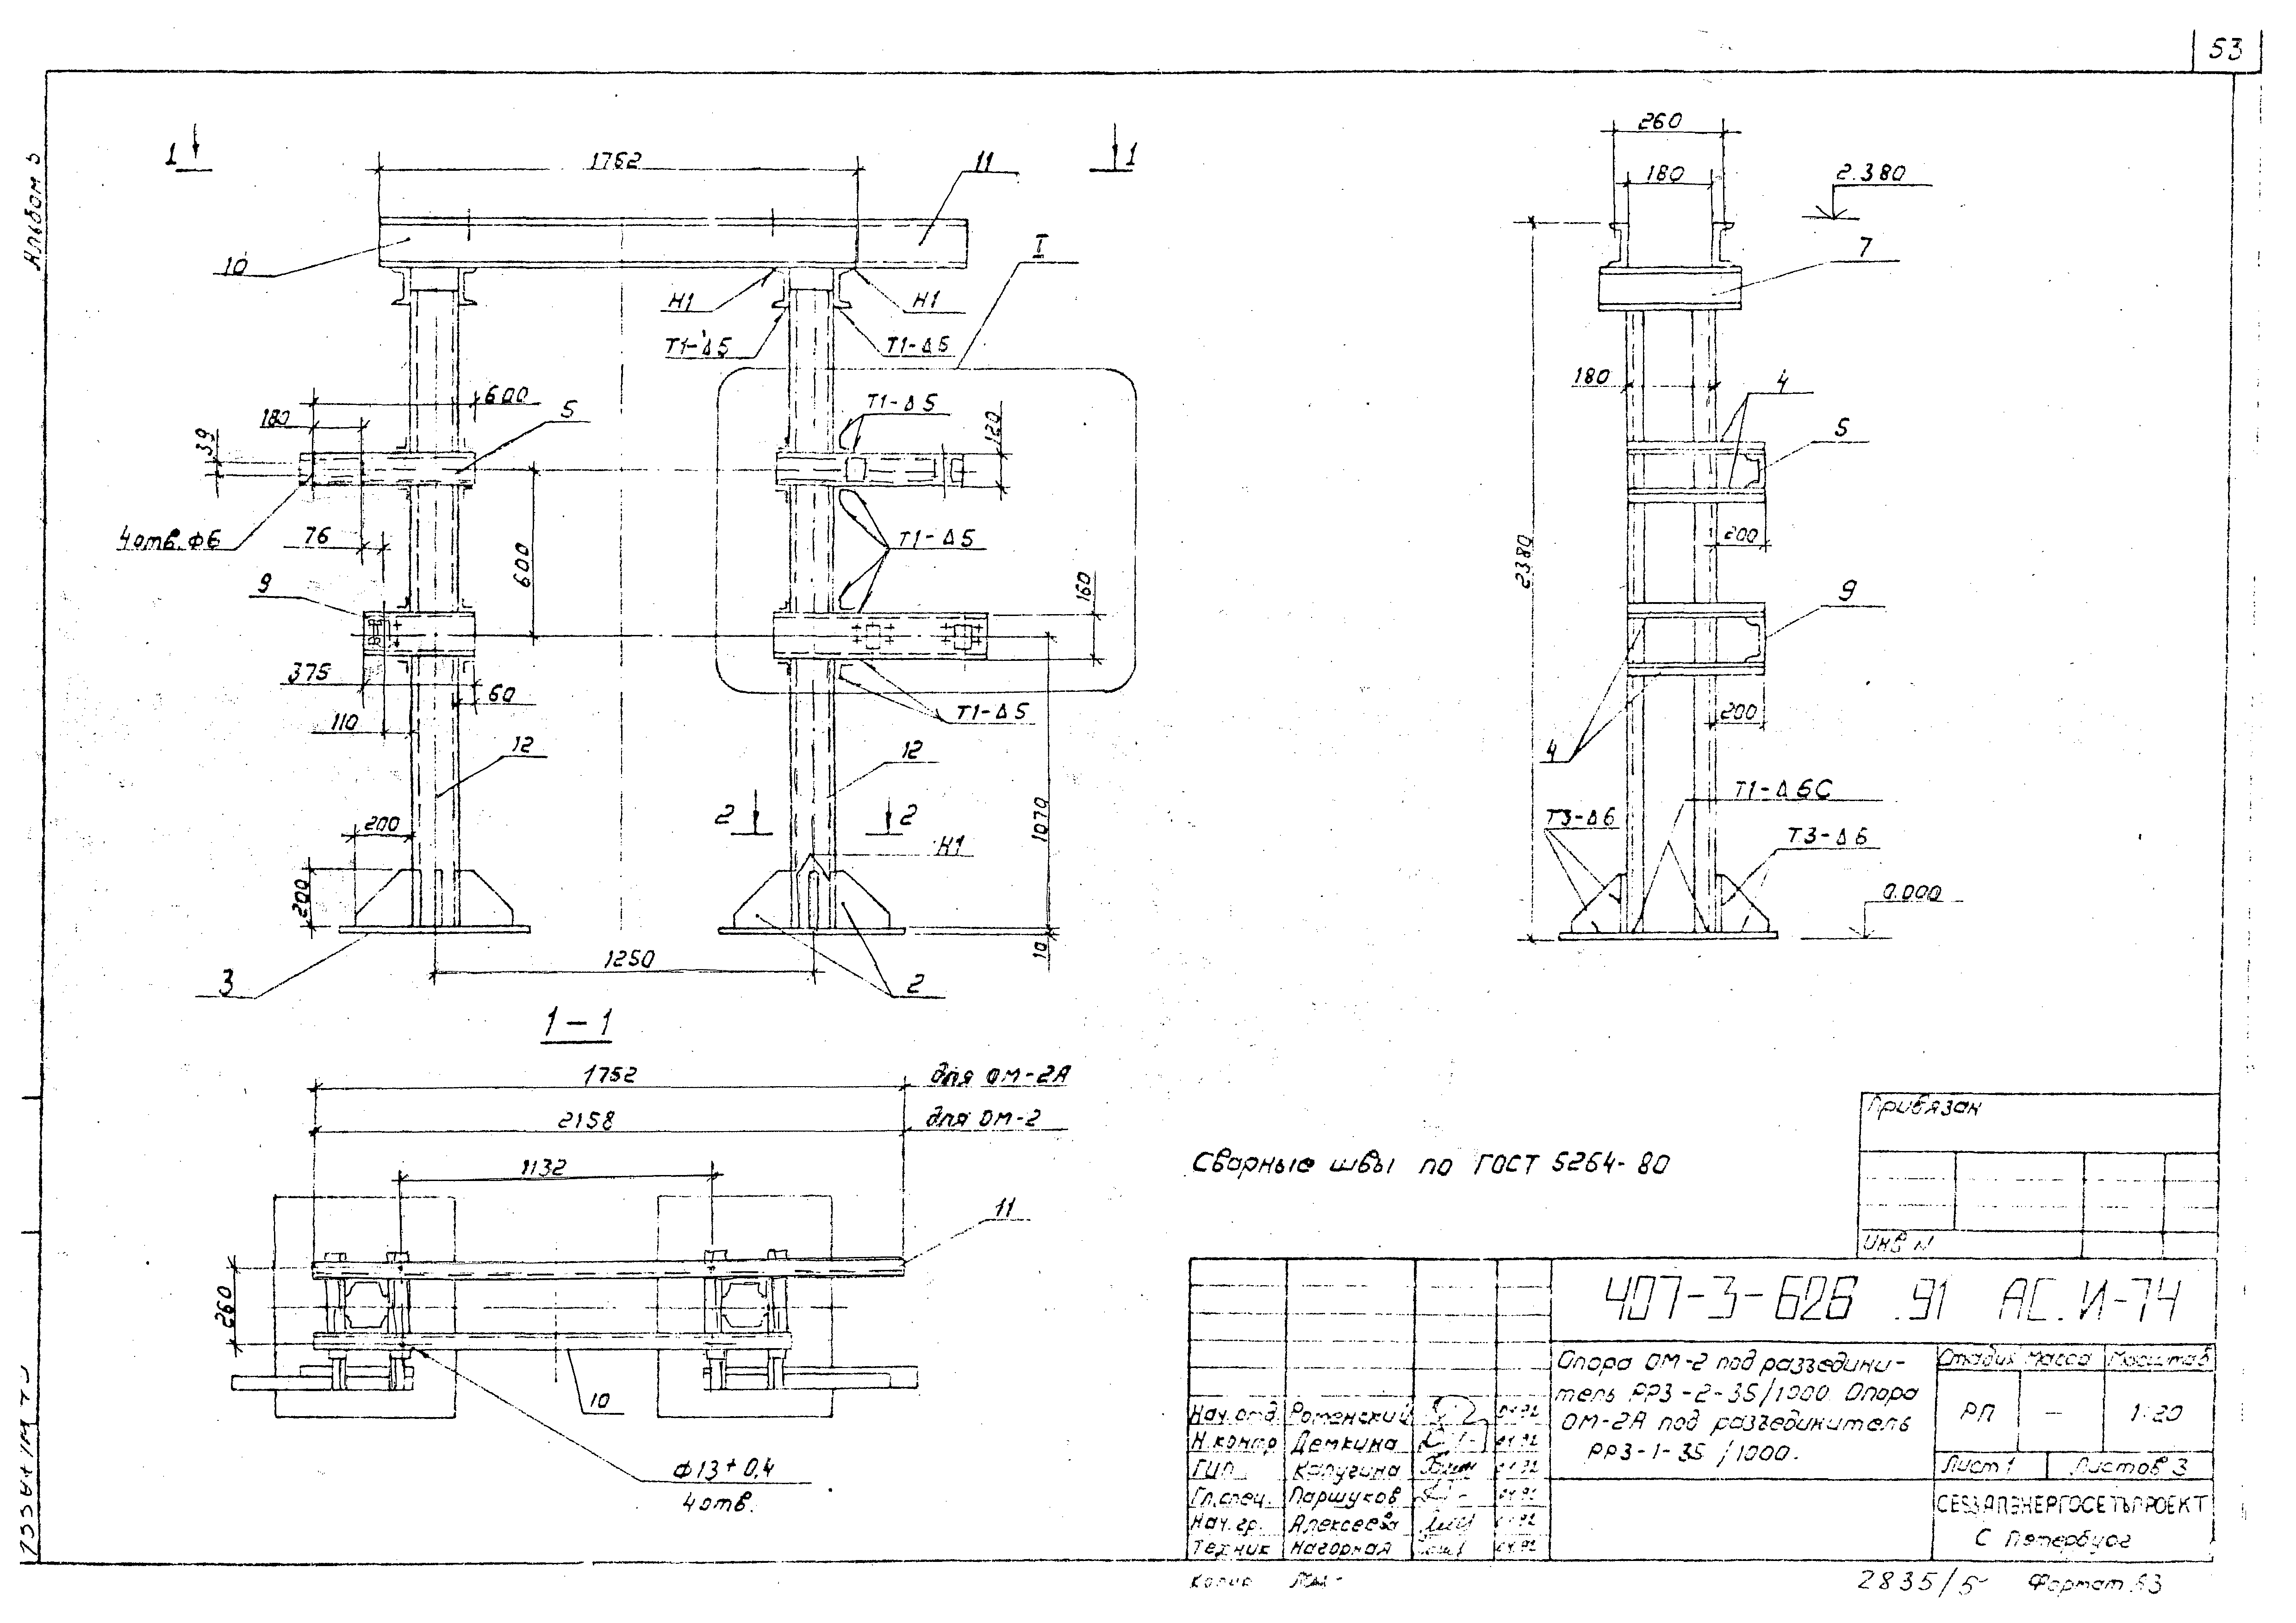 53
Альбом 5
1
1
1762
11
10
I
Н1
Н1
Т1-Δ5
Т1-Δ5
600
5
180
39
Т1-Δ5
120
4отв.Ф6
76
600
Т1-Δ5
9
160
375
60
110
Т1-Δ5
12
12
200
2
2
1070
Н1
200
10
1250
3
2
260
180
2.380
7
180
4
5
2380
200
9
200
4
Т1-Δ6С
Т3-Δ6
Т3-Δ6
0.000
1-1
1752
для ОМ-2А
2158
для ОМ-2
1132
11
260
10
Ф13+0,4
4отв.
Сварные швы по ГОСТ 5264-80
Привязан
Инв N
407-3-626.91 АС.И-74
Опора ОМ-2 под разъедини-
тель РРЗ-2-35/1000. Опора
ОМ-2А под разъединитель
РРЗ-1-35/1000.
Стадия Масса Масштаб
РП — 1:20
Лист 1 Листов 3
СЕВЗАПЭНЕРГОСЕТЬПРОЕКТ
С Петербург
Нач.отд. Роменский 04.92
Н.контр Демкина 04.92
ГИП Калугина 04.92
Гл.спец. Паршуков 04.92
Нач.гр. Алексеева 04.92
Техник Нагорная 04.92
Копир
2835/5 Формат А3